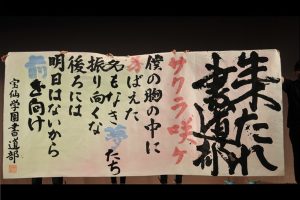 朱たれ
書道部
サクラ咲ケ
僕の胸の中に
芽ばえた
名もなき夢たち
振り向くな
後ろには
明日はないから
前を向け
宝仙学園書道部